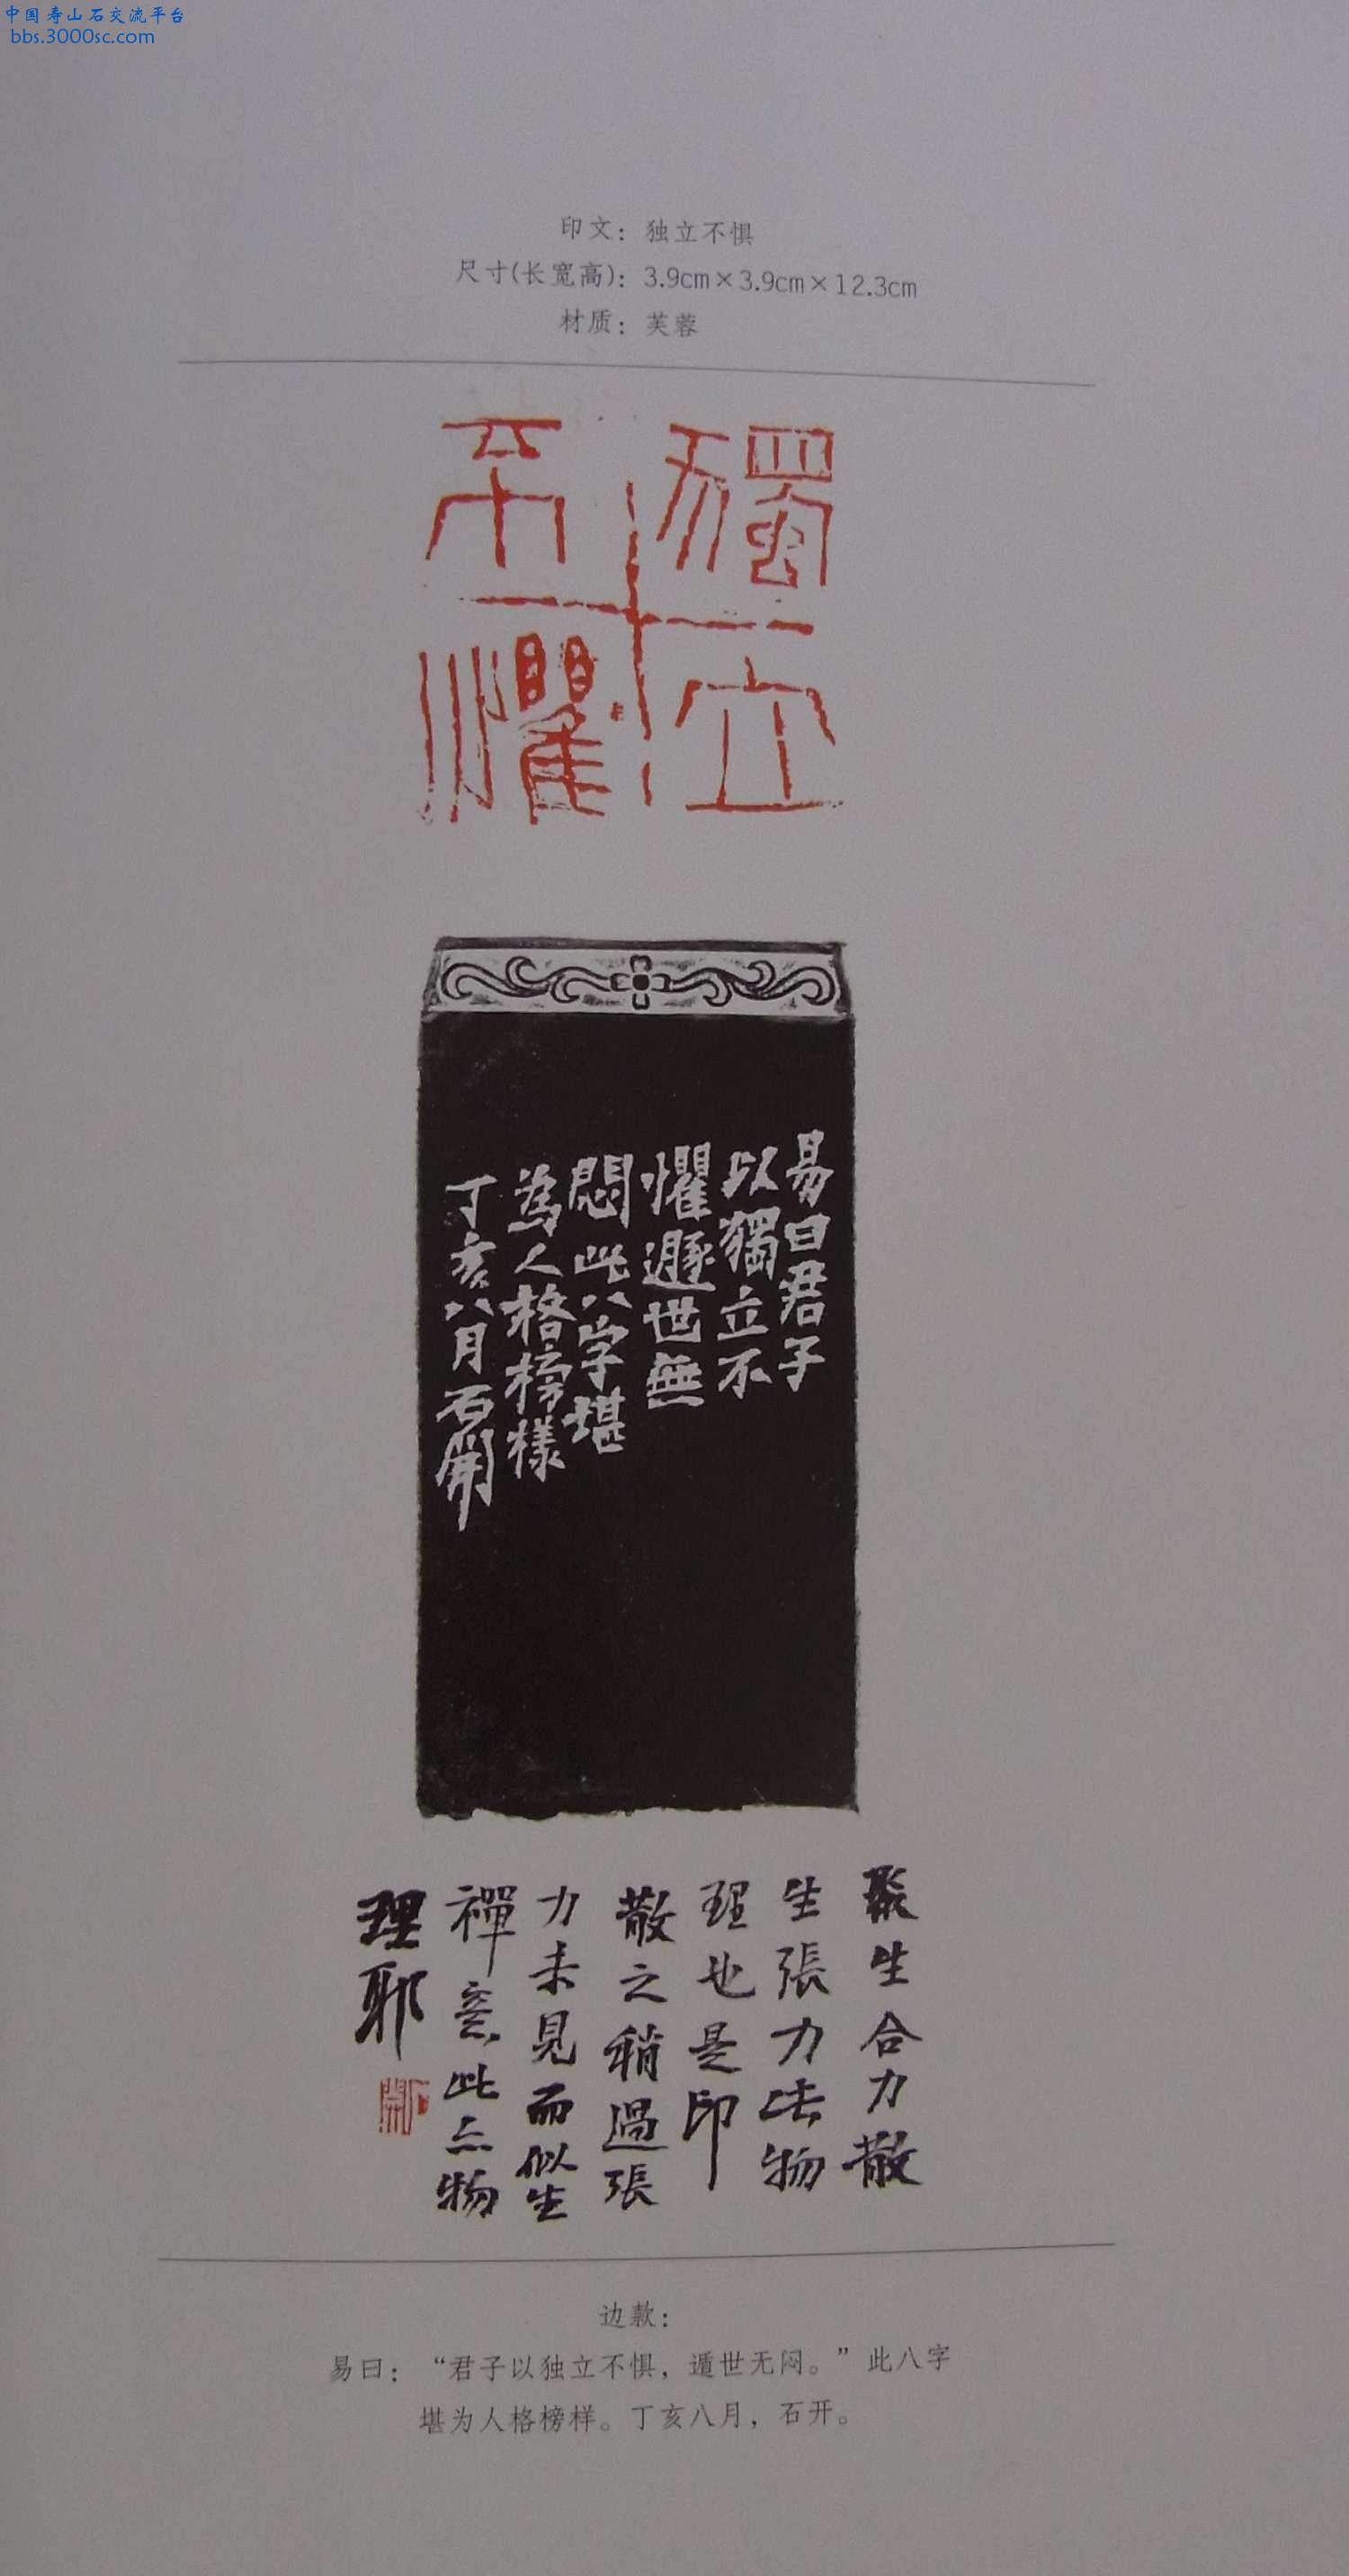 中国寿山石交流平台
bbs.3000sc.com
印文：独立不惧
尺寸(长宽高)：3.9cm×3.9cm×12.3cm
材质：芙蓉
獨立
不懼
易曰君子
以獨立不
懼遯世無
悶此八字堪
為人格榜樣
丁亥八月石開
聚生合力散
生張力此物
理也是印
散之稍過張
力未見而似生
禪意此亦物
理耶
石開
边款：
易曰：“君子以独立不惧，遁世无闷。”此八字
堪为人格榜样。丁亥八月，石开。